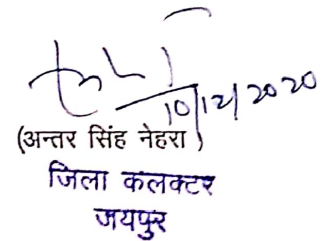 10/12/2020
(अन्तर सिंह नेहरा)
जिला कलक्टर
जयपुर